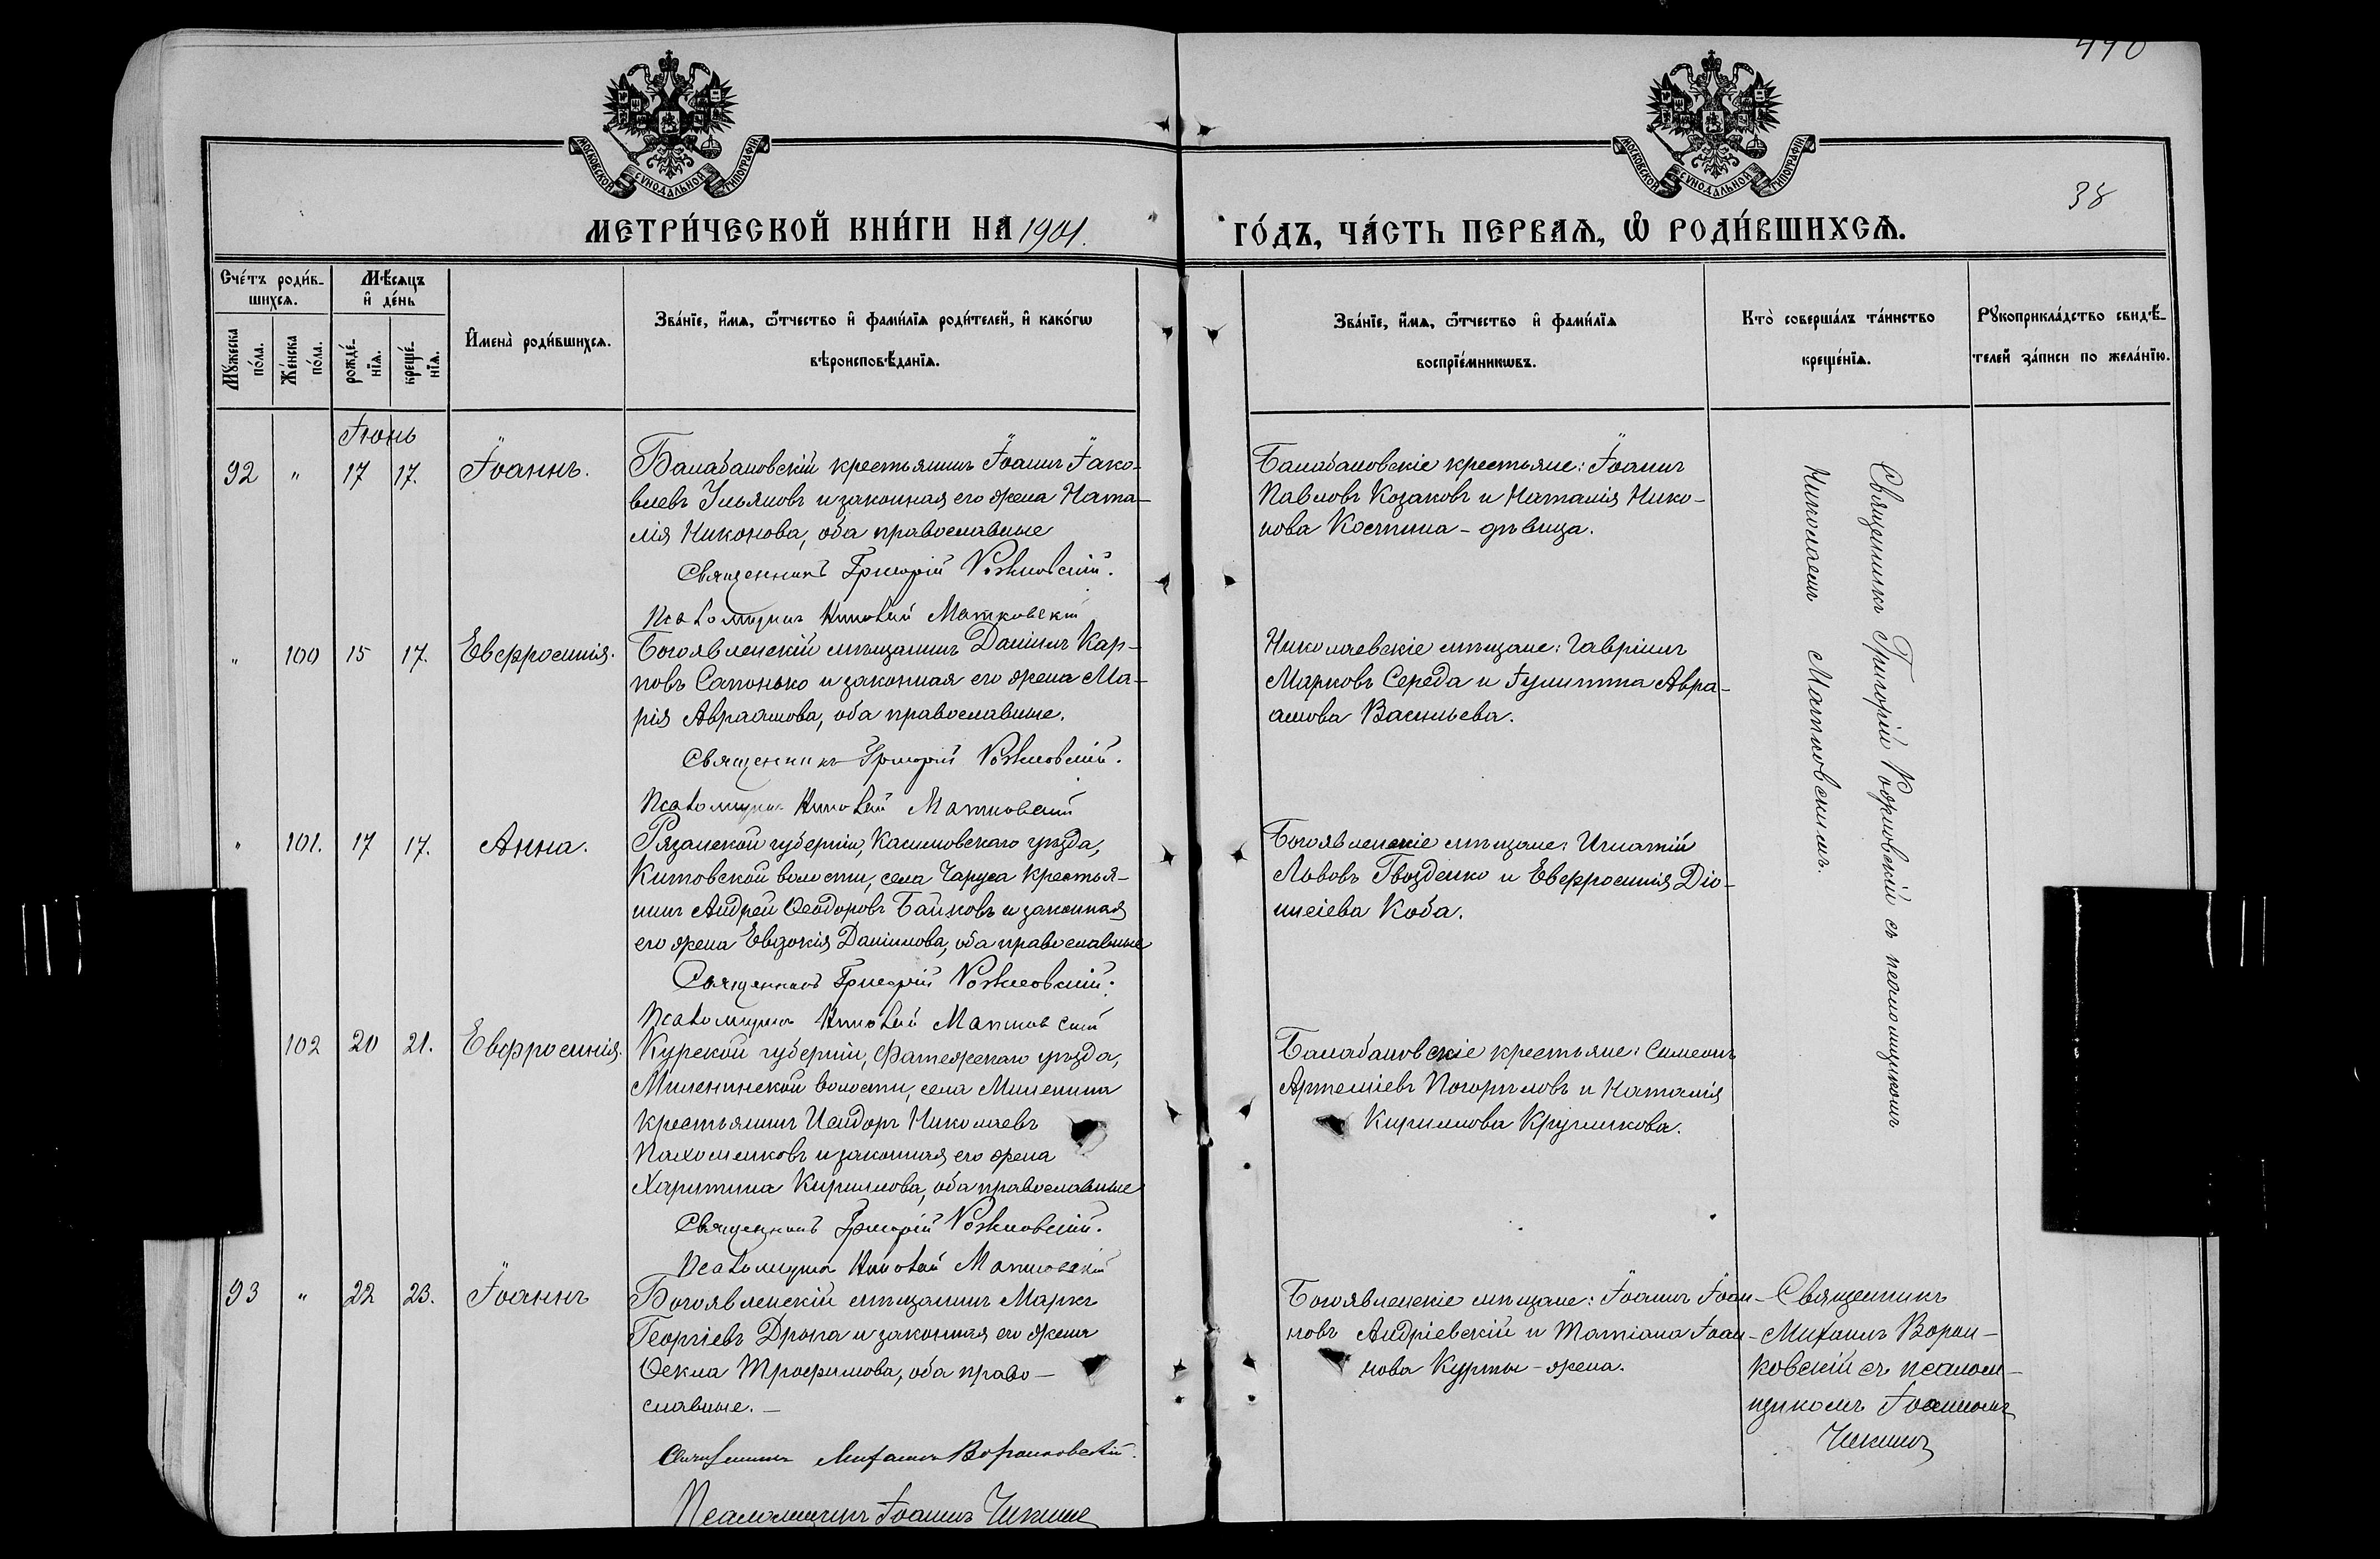 440
38
МОСКОВСКОЙ СѴНОДАЛЬНОЙ ТИПОГРАФІИ
МОСКОВСКОЙ СѴНОДАЛЬНОЙ ТИПОГРАФІИ
МЕТРИ́ЧЕСКОЙ КНИ́ГИ НА 1901.
ГО́ДЪ, ЧА́СТЬ ПЕРВАѦ, Ѽ РОДИ́ВШИХСѦ.
Сче́тъ роди́в-
шихсѧ.
Мꙋ́жеска
по́ла.
Же́нска
по́ла.
Мѣ́сѧцъ
и҆ де́нь
рожде́-
нїѧ.
креще́-
нїѧ.
И҆мена̀ роди́вшихсѧ.
Зва́нїе, и҆́мѧ, ѻ҆́тчество и҆ фами́лїѧ роди́телей, и҆ како́гѡ
вѣроисповѣ́данїѧ.
Зва́нїе, и҆́мѧ, ѻ҆́тчество и҆ фами́лїѧ
воспрїе́мникѡвъ.
Кто̀ соверша́лъ та́инство
креще́нїѧ.
Рꙋкоприкла́дство свидѣ́-
телей за́писи по жела́нїю.
Іюнь
92 " 17 17. Іоаннъ.
Балабановскій крестьянинъ Іоаннъ Іако-
влевъ Ульяновъ и законная его жена Ната-
лія Никонова, оба православные
Священникъ Григорій Рожновскій.
Псаломщикъ Николай Матковскій
Балабановскіе крестьяне: Іоаннъ
Павловъ Козаковъ и Наталія Нико-
нова Костина - дѣвица.
Священникъ Григорій Рожновскій съ псаломщикомъ
Николаемъ Матковскимъ.
" 100 15 17. Евфросинія.
Богоявленскій мѣщанинъ Даніилъ Кар-
повъ Сапонько и законная его жена Ма-
рія Авраамова, оба православные.
Священникъ Григорій Рожновскій.
Псаломщикъ Николай Матковскій
Николаевскіе мѣщане: Гавріилъ
Марковъ Середа и Іулитта Авра-
амова Васильева.
" 101. 17 17. Анна.
Рязанской губерніи, Касимовскаго уѣзда,
Китовской волости, села Чаруса крестья-
нинъ Андрей Ѳеодоровъ Байковъ и законная
его жена Евдокія Даніилова, оба православные
Священникъ Григорій Рожновскій.
Псаломщикъ Николай Матковскій
Богоявленскіе мѣщане: Игнатій
Львовъ Гвозденко и Евфросинія Діо-
нисіева Коба.
102 20 21. Евфросинія.
Курской губерніи, Фатежскаго уѣзда,
Миленинской волости, села Миленина
крестьянинъ Исидоръ Николаевъ
Пахоменковъ и законная его жена
Харитина Кириллова, оба православные
Священникъ Григорій Рожновскій.
Псаломщикъ Николай Матковскій
Балабановскіе крестьяне: Симеонъ
Артеміевъ Погорѣловъ и Наталія
Кириллова Кругликова.
93 " 22 23. Іоаннъ
Богоявленскій мѣщанинъ Маркъ
Георгіевъ Дрыга и законная его жена
Ѳекла Трофимова, оба право-
славные. -
Священникъ Михаилъ Воронковскій.
Псаломщикъ Іоаннъ Чекинъ
Богоявленскіе мѣщане: Іоаннъ Іоан-
новъ Андріевскій и Татіана Іоан-
нова Курты - жена.
Священникъ
Михаилъ Ворон-
ковскій съ псалом-
щикомъ Іоанномъ